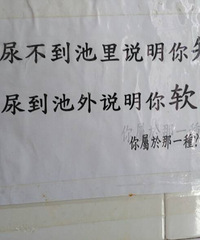 尿不到池里说明你
尿到池外说明你软
你屬於那一種?